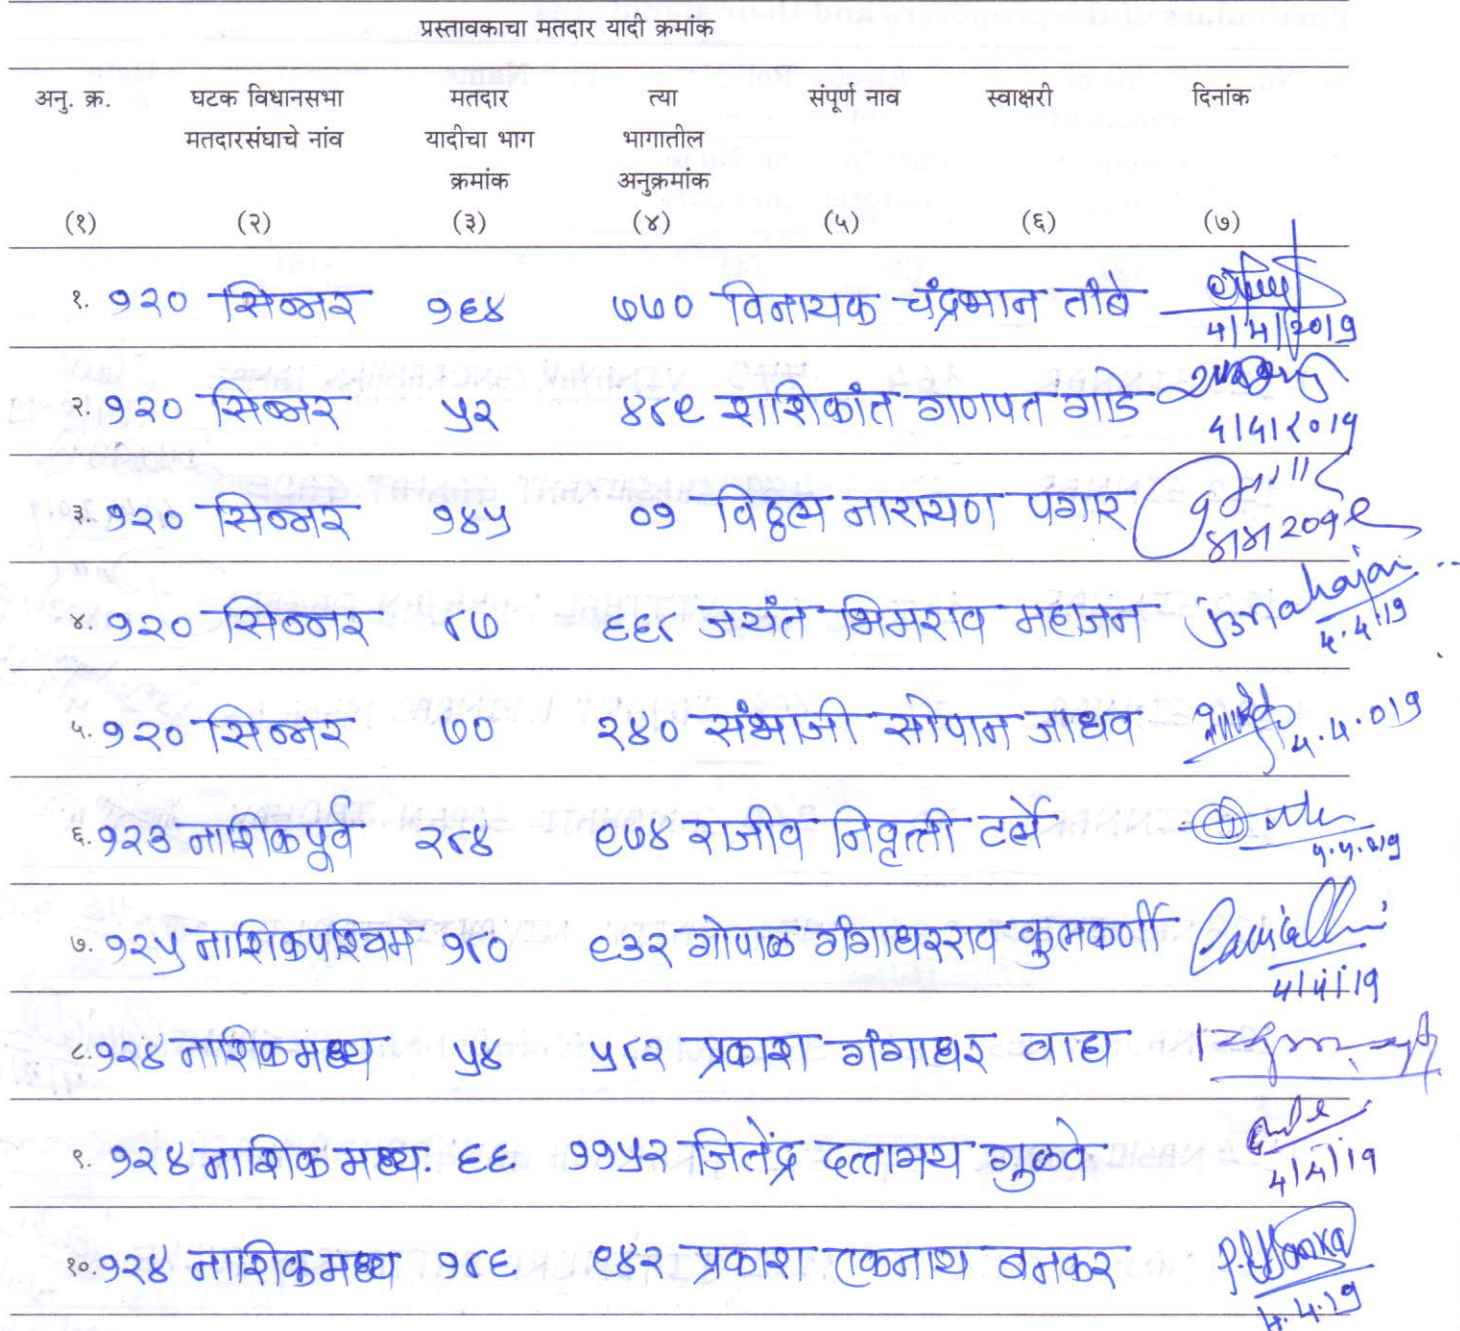 प्रस्तावकाचा मतदार यादी क्रमांक
अनु. क्र. घटक विधानसभा मतदार त्या संपूर्ण नाव स्वाक्षरी दिनांक
मतदारसंघाचे नांव यादीचा भाग भागातील
क्रमांक अनुक्रमांक
(१) (२) (३) (४) (५) (६) (७)
१. १२० सिन्नर १६४ ७७० विनायक चंद्रभान तांबे
4/4/2019
२. १२० सिन्नर ५२ ४८९ शशिकांत गणपत गाडे
4/4/2019
३. १२० सिन्नर १४५ ०१ विठ्ठल नारायण पगार
४/४/२०१९
४. १२० सिन्नर ८७ ६६८ जयंत भिमराव महाजन
4.4.19
५. १२० सिन्नर ७० २४० संभाजी सोपान जाधव 4.4.019
६. १२३ नाशिक पूर्व २८४ ९७४ राजीव निवृत्ती टर्ले
७. १२५ नाशिक पश्चिम १८० ९३२ गोपाळ गंगाधरराव कुलकर्णी
4/4/19
८. १२४ नाशिक मध्य ५४ ५८२ प्रकाश गंगाधर वाघ
९. १२४ नाशिक मध्य. ६६ ११५२ जितेंद्र दत्तात्रय गुळवे
4/4/19
१०. १२४ नाशिक मध्य १८६ ९४२ प्रकाश एकनाथ बनकर
4.4.19